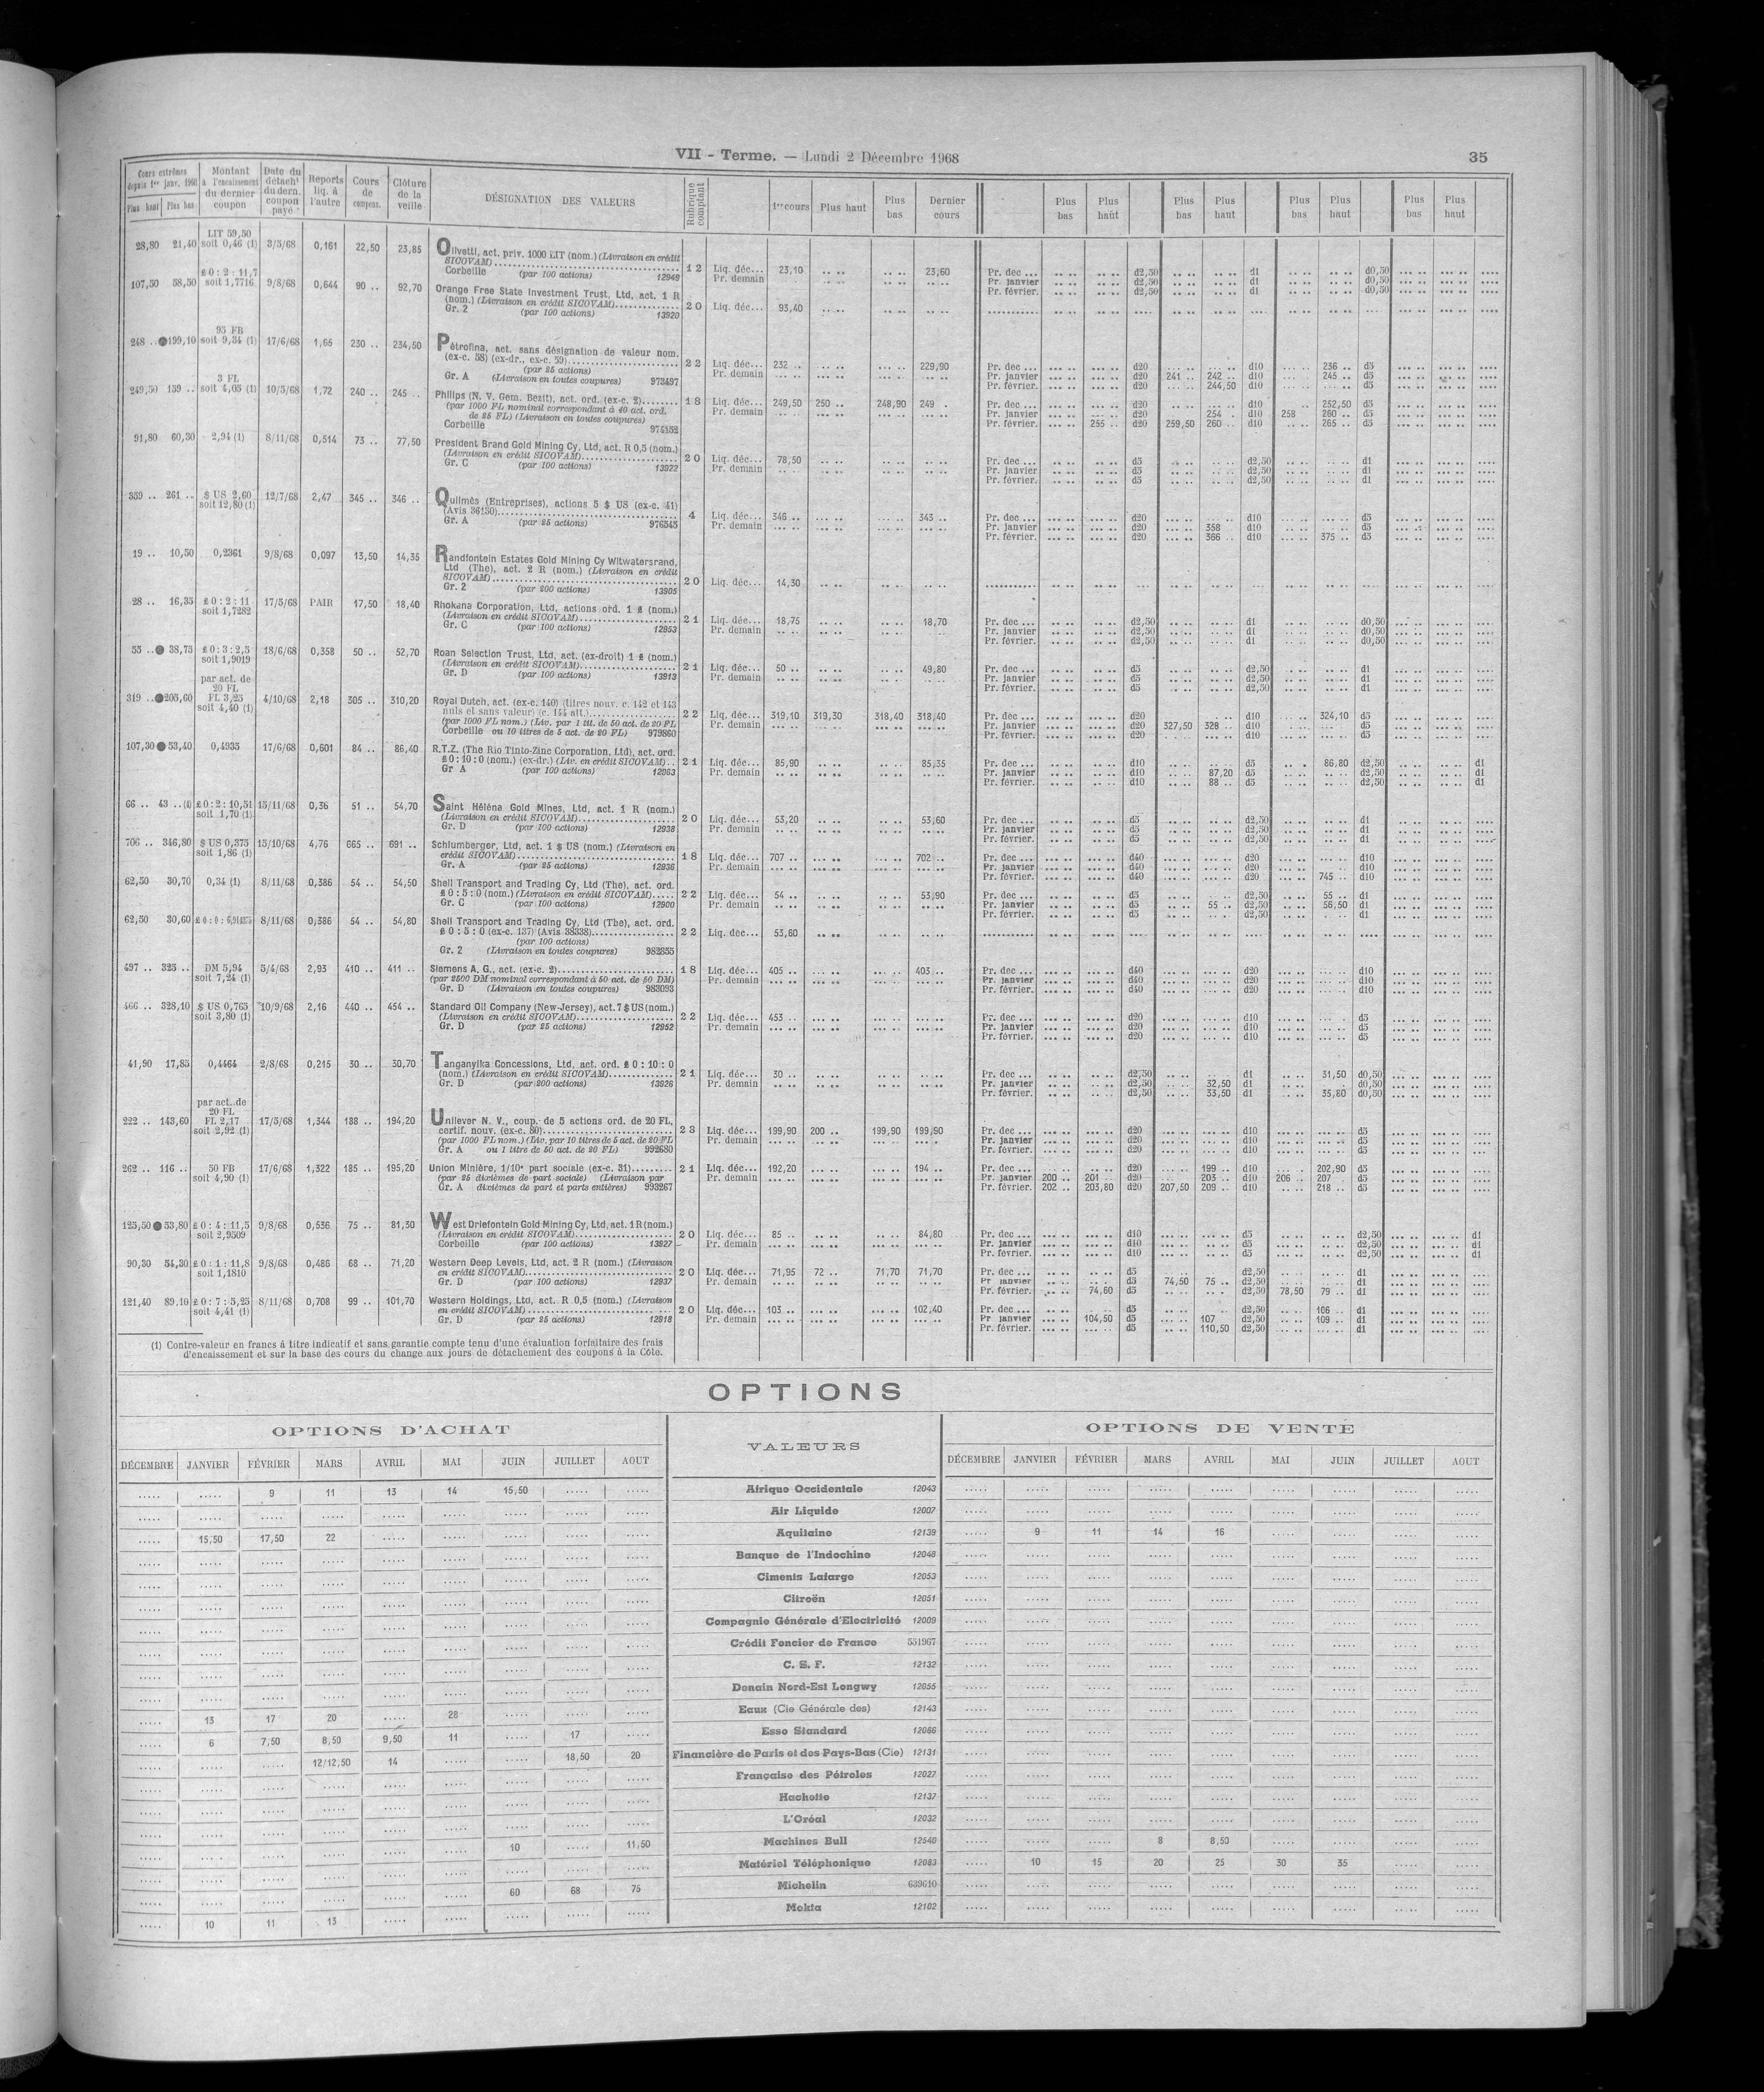 VII - Terme. — Lundi 2 Décembre 1968 35
Cours extrêmes depuis 1er janv. 1968 Plus haut Plus bas Montant à l'encaissement du dernier coupon Date du détacht du dern. coupon payé Reports liq. à l'autre Cours de compens. Clôture de la veille DÉSIGNATION DES VALEURS Rubrique comptant 1er cours Plus haut Plus bas Dernier cours Plus bas Plus haut Plus bas Plus haut Plus bas Plus haut Plus bas Plus haut
LIT 59,50
28,80 21,40 soit 0,46 (1) 3/5/68 0,161 22,50 23,85 Olivetti, act. priv. 1000 LIT (nom.) (Livraison en crédit
SICOVAM)
Corbeille (par 100 actions) 12949 12 Liq. déc... 23,10 23,60 Pr. dec ... d2,50 d1 d0,50
Pr. demain Pr. janvier d2,50 d1 d0,50
Pr. février. d2,50 d1 d0,50
£ 0 : 2 : 11,7
107,50 58,50 soit 1,7716 9/8/68 0,644 90 .. 92,70 Orange Free State Investment Trust, Ltd, act. 1 R
(nom.) (Livraison en crédit SICOVAM)
Gr. 2 (par 100 actions) 13920 20 Liq. déc... 93,40
95 FB
248 .. ●199,10 soit 9,34 (1) 17/6/68 1,65 230 .. 234,50 Pétrofina, act. sans désignation de valeur nom.
(ex-c. 58) (ex-dr., ex-c. 59)
(par 25 actions)
Gr. A (Livraison en toutes coupures) 973497 22 Liq. déc... 232 .. 229,90 Pr. dec ... d20 d10 236 .. d5
Pr. demain Pr. janvier d20 241 .. 242 .. d10 245 .. d5
Pr. février. d20 244,50 d10 d5
3 FL
249,50 159 .. soit 4,05 (1) 10/5/68 1,72 240 .. 245 .. Philips (N. V. Gem. Bezit), act. ord. (ex-c. 2)
(par 1000 FL nominal correspondant à 40 act. ord.
de 25 FL) (Livraison en toutes coupures)
Corbeille 974152 18 Liq. déc... 249,50 250 .. 248,90 249 . Pr. dec ... d20 d10 252,50 d5
Pr. demain Pr. janvier d20 254 .. d10 258 260 .. d5
Pr. février. 255 .. d20 259,50 260 .. d10 265 .. d5
91,80 60,30 2,94 (1) 8/11/68 0,514 73 .. 77,50 President Brand Gold Mining Cy, Ltd, act. R 0,5 (nom.)
(Livraison en crédit SICOVAM)
Gr. C (par 100 actions) 13922 20 Liq. déc... 78,50 Pr. dec ... d5 d2,50 d1
Pr. demain Pr. janvier d5 d2,50 d1
Pr. février. d5 d2,50 d1
359 .. 261 .. $ US 2,60 soit 12,80 (1) 12/7/68 2,47 345 .. 346 .. Quilmès (Entreprises), actions 5 $ US (ex-c. 41)
(Avis 36130)
Gr. A (par 25 actions) 976545 4 Liq. déc... 346 .. 343 .. Pr. dec ... d20 d10 d5
Pr. demain Pr. janvier d20 358 d10 d5
Pr. février. d20 366 .. d10 375 .. d5
19 .. 10,50 0,2361 9/8/68 0,097 13,50 14,35 Randfontein Estates Gold Mining Cy Witwatersrand,
Ltd (The), act. 2 R (nom.) (Livraison en crédit
SICOVAM)
Gr. 2 (par 200 actions) 13905 20 Liq. déc... 14,30
28 .. 16,35 £ 0 : 2 : 11 soit 1,7282 17/5/68 PAIR 17,50 18,40 Rhokana Corporation, Ltd, actions ord. 1 £ (nom.)
(Livraison en crédit SICOVAM)
Gr. C (par 100 actions) 12953 21 Liq. déc... 18,75 18,70 Pr. dec ... d2,50 d1 d0,50
Pr. demain Pr. janvier d2,50 d1 d0,50
Pr. février. d2,50 d1 d0,50
55 .. ● 38,75 £ 0 : 3 : 2,5 soit 1,9019 18/6/68 0,358 50 .. 52,70 Roan Selection Trust, Ltd, act. (ex-droit) 1 £ (nom.)
(Livraison en crédit SICOVAM)
Gr. D (par 100 actions) 13913 21 Liq. déc... 50 .. 49,80 Pr. dec ... d5 d2,50 d1
Pr. demain Pr. janvier d5 d2,50 d1
Pr. février. d5 d2,50 d1
par act. de
20 FL
319 .. ●205,60 FL 3,25 soit 4,40 (1) 4/10/68 2,18 305 .. 310,20 Royal Dutch, act. (ex-c. 140) (titres nouv. c. 142 et 143
nuls et sans valeur) (c. 144 att.)
(par 1000 FL nom.) (Liv. par 1 tit. de 50 act. de 20 FL
Corbeille ou 10 titres de 5 act. de 20 FL) 979860 22 Liq. déc... 319,10 319,30 318,40 318,40 Pr. dec ... d20 d10 324,10 d5
Pr. demain Pr. janvier d20 327,50 328 .. d10 d5
Pr. février. d20 d10 d5
107,30 ● 53,40 0,4935 17/6/68 0,601 84 .. 86,40 R.T.Z. (The Rio Tinto-Zinc Corporation, Ltd), act. ord.
£ 0 : 10 : 0 (nom.) (ex-dr.) (Liv. en crédit SICOVAM)
Gr A (par 100 actions) 12063 21 Liq. déc... 85,90 85,35 Pr. dec ... d10 d5 86,80 d2,50 d1
Pr. demain Pr. janvier d10 87,20 d5 d2,50 d1
Pr. février. d10 88 .. d5 d2,50 d1
66 .. 43 .. (1) £ 0 : 2 : 10,51 soit 1,70 (1) 15/11/68 0,36 51 .. 54,70 Saint Héléna Gold Mines, Ltd, act. 1 R (nom.)
(Livraison en crédit SICOVAM)
Gr. D (par 100 actions) 12938 20 Liq. déc... 53,20 53,60 Pr. dec ... d5 d2,50 d1
Pr. demain Pr. janvier d5 d2,50 d1
Pr. février. d5 d2,50 d1
706 .. 346,80 $ US 0,375 soit 1,86 (1) 15/10/68 4,76 665 .. 691 .. Schlumberger, Ltd, act. 1 $ US (nom.) (Livraison en
crédit SICOVAM)
Gr. A (par 25 actions) 12936 18 Liq. déc... 707 .. 702 .. Pr. dec ... d40 d20 d10
Pr. demain Pr. janvier d40 d20 d10
Pr. février. d40 d20 745 .. d10
62,50 30,70 0,34 (1) 8/11/68 0,386 54 .. 54,50 Shell Transport and Trading Cy, Ltd (The), act. ord.
£ 0 : 5 : 0 (nom.) (Livraison en crédit SICOVAM)
Gr. C (par 100 actions) 12900 22 Liq. déc... 54 .. 53,90 Pr. dec ... d5 d2,50 55 .. d1
Pr. demain Pr. janvier d5 55 .. d2,50 56,50 d1
Pr. février. d5 d2,50 d1
62,50 30,60 8/11/68 0,386 54 .. 54,80 Shell Transport and Trading Cy, Ltd (The), act. ord.
£ 0 : 5 : 0 (ex-c. 137) (Avis 38338)
(par 100 actions)
Gr. 2 (Livraison en toutes coupures) 982855 22 Liq. dec... 53,60
497 .. 325 .. DM 5,94 soit 7,24 (1) 5/4/68 2,93 410 .. 411 .. Siemens A. G., act. (ex-c. 2)
(par 2500 DM nominal correspondant à 50 act. de 50 DM)
Gr. D (Livraison en toutes coupures) 983093 18 Liq. déc... 405 .. 403 .. Pr. dec ... d40 d20 d10
Pr. demain Pr. janvier d40 d20 d10
Pr. février. d40 d20 d10
466 .. 328,10 $ US 0,765 soit 3,80 (1) 10/9/68 2,16 440 .. 454 .. Standard Oil Company (New-Jersey), act. 7 $ US (nom.)
(Livraison en crédit SICOVAM)
Gr. D (par 25 actions) 12952 22 Liq. déc... 453 .. Pr. dec ... d20 d10 d5
Pr. demain Pr. janvier d20 d10 d5
Pr. février. d20 d10 d5
41,90 17,85 0,4464 2/8/68 0,215 30 .. 30,70 Tanganyika Concessions, Ltd, act. ord. £ 0 : 10 : 0
(nom.) (Livraison en crédit SICOVAM)
Gr. D (par 200 actions) 13926 21 Liq. déc... 30 .. Pr. dec ... d2,50 d1 31,50 d0,50
Pr. demain Pr. janvier d2,50 32,50 d1 d0,50
Pr. février. d2,50 33,50 d1 35,80 d0,50
par act. de
20 FL
222 .. 143,60 FL 2,17 soit 2,92 (1) 17/5/68 1,344 188 .. 194,20 Unilever N. V., coup. de 5 actions ord. de 20 FL,
certif. nouv. (ex-c. 80)
(par 1000 FL nom.) (Liv. par 10 titres de 5 act. de 20 FL
Gr. A ou 1 titre de 50 act. de 20 FL) 992680 23 Liq. déc... 199,90 200 .. 199,90 199,90 Pr. dec ... d20 d10 d5
Pr. demain Pr. janvier d20 d10 d5
Pr. février. d20 d10 d5
262 .. 116 .. 50 FB soit 4,90 (1) 17/6/68 1,322 185 .. 195,20 Union Minière, 1/10e part sociale (ex-c. 31)
(par 25 dixièmes de part sociale) (Livraison par
Gr. A dixièmes de part et parts entières) 993267 21 Liq. déc... 192,20 194 .. Pr. dec ... d20 199 .. d10 202,90 d5
Pr. demain Pr. janvier 200 .. 201 .. d20 203 .. d10 206 .. 207 d5
Pr. février. 202 .. 203,80 d20 207,50 209 .. d10 218 .. d5
125,50 ● 53,80 £ 0 : 4 : 11,5 soit 2,9509 9/8/68 0,536 75 .. 81,30 West Driefontein Gold Mining Cy, Ltd, act. 1 R (nom.)
(Livraison en crédit SICOVAM)
Corbeille (par 100 actions) 13927 20 Liq. déc... 85 .. 84,80 Pr. dec ... d10 d5 d2,50 d1
Pr. demain Pr. janvier d10 d5 d2,50 d1
Pr. février. d10 d5 d2,50 d1
90,30 54,30 £ 0 : 1 : 11,8 soit 1,1810 9/8/68 0,486 68 .. 71,20 Western Deep Levels, Ltd, act. 2 R (nom.) (Livraison
en crédit SICOVAM)
Gr. D (par 100 actions) 12937 20 Liq. déc... 71,95 72 .. 71,70 71,70 Pr. dec ... d5 d2,50 d1
Pr. demain Pr janvier d5 74,50 75 .. d2,50 d1
Pr. février. 74,60 d5 d2,50 78,50 79 .. d1
121,40 89,10 £ 0 : 7 : 5,25 soit 4,41 (1) 8/11/68 0,708 99 .. 101,70 Western Holdings, Ltd, act. R 0,5 (nom.) (Livraison
en crédit SICOVAM)
Gr. D (par 25 actions) 12918 20 Liq. déc... 103 .. 102,40 Pr. dec ... d5 d2,50 106 .. d1
Pr. demain Pr janvier 104,50 d5 107 d2,50 109 .. d1
Pr. février. d5 110,50 d2,50 d1
(1) Contre-valeur en francs à titre indicatif et sans garantie compte tenu d'une évaluation forfaitaire des frais
d'encaissement et sur la base des cours du change aux jours de détachement des coupons à la Côte.
OPTIONS
OPTIONS D'ACHAT VALEURS OPTIONS DE VENTE
DÉCEMBRE JANVIER FÉVRIER MARS AVRIL MAI JUIN JUILLET AOUT DÉCEMBRE JANVIER FÉVRIER MARS AVRIL MAI JUIN JUILLET AOUT
..... ..... 9 11 13 14 15,50 ..... ..... Afrique Occidentale 12043
Air Liquide 12007
..... 15,50 17,50 22 ..... ..... ..... ..... ..... Aquitaine 12139 ..... 9 11 14 16 ..... ..... ..... .....
Banque de l'Indochine 12048
Ciments Lafarge 12053
Citroën 12051
Compagnie Générale d'Electricité 12009
Crédit Foncier de France 551967
C. S. F. 12132
Denain Nord-Est Longwy 12055
..... 13 17 20 ..... 28 ..... ..... ..... Eaux (Cie Générale des) 12143
..... 6 7,50 8,50 9,50 11 ..... 17 ..... Esso Standard 12086
..... ..... ..... 12/12,50 14 ..... ..... 18,50 20 Financière de Paris et des Pays-Bas (Cie) 12131
Française des Pétroles 12027
Hachette 12137
L'Oréal 12032
..... ..... ..... ..... ..... ..... 10 ..... 11,50 Machines Bull 12540 ..... ..... ..... 8 8,50 ..... ..... ..... .....
Matériel Téléphonique 12083 ..... 10 15 20 25 30 35 ..... .....
..... ..... ..... ..... ..... ..... 60 68 75 Michelin 639610
..... 10 11 13 ..... ..... ..... ..... ..... Mokta 12102